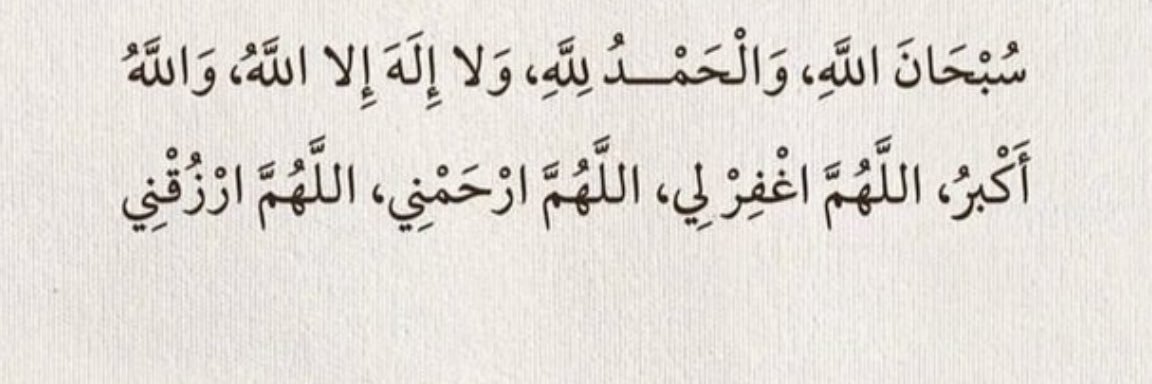 سُبْحَانَ اللَّهِ، وَالْحَمْـــدُ لِلَّهِ، وَلا إِلَهَ إِلا اللَّهُ، وَاللَّهُ
أَكْبرُ، اللَّهُمَّ اغْفِرْ لِي، اللَّهُمَّ ارْحَمْنِي، اللَّهُمَّ ارْزُقْنِي